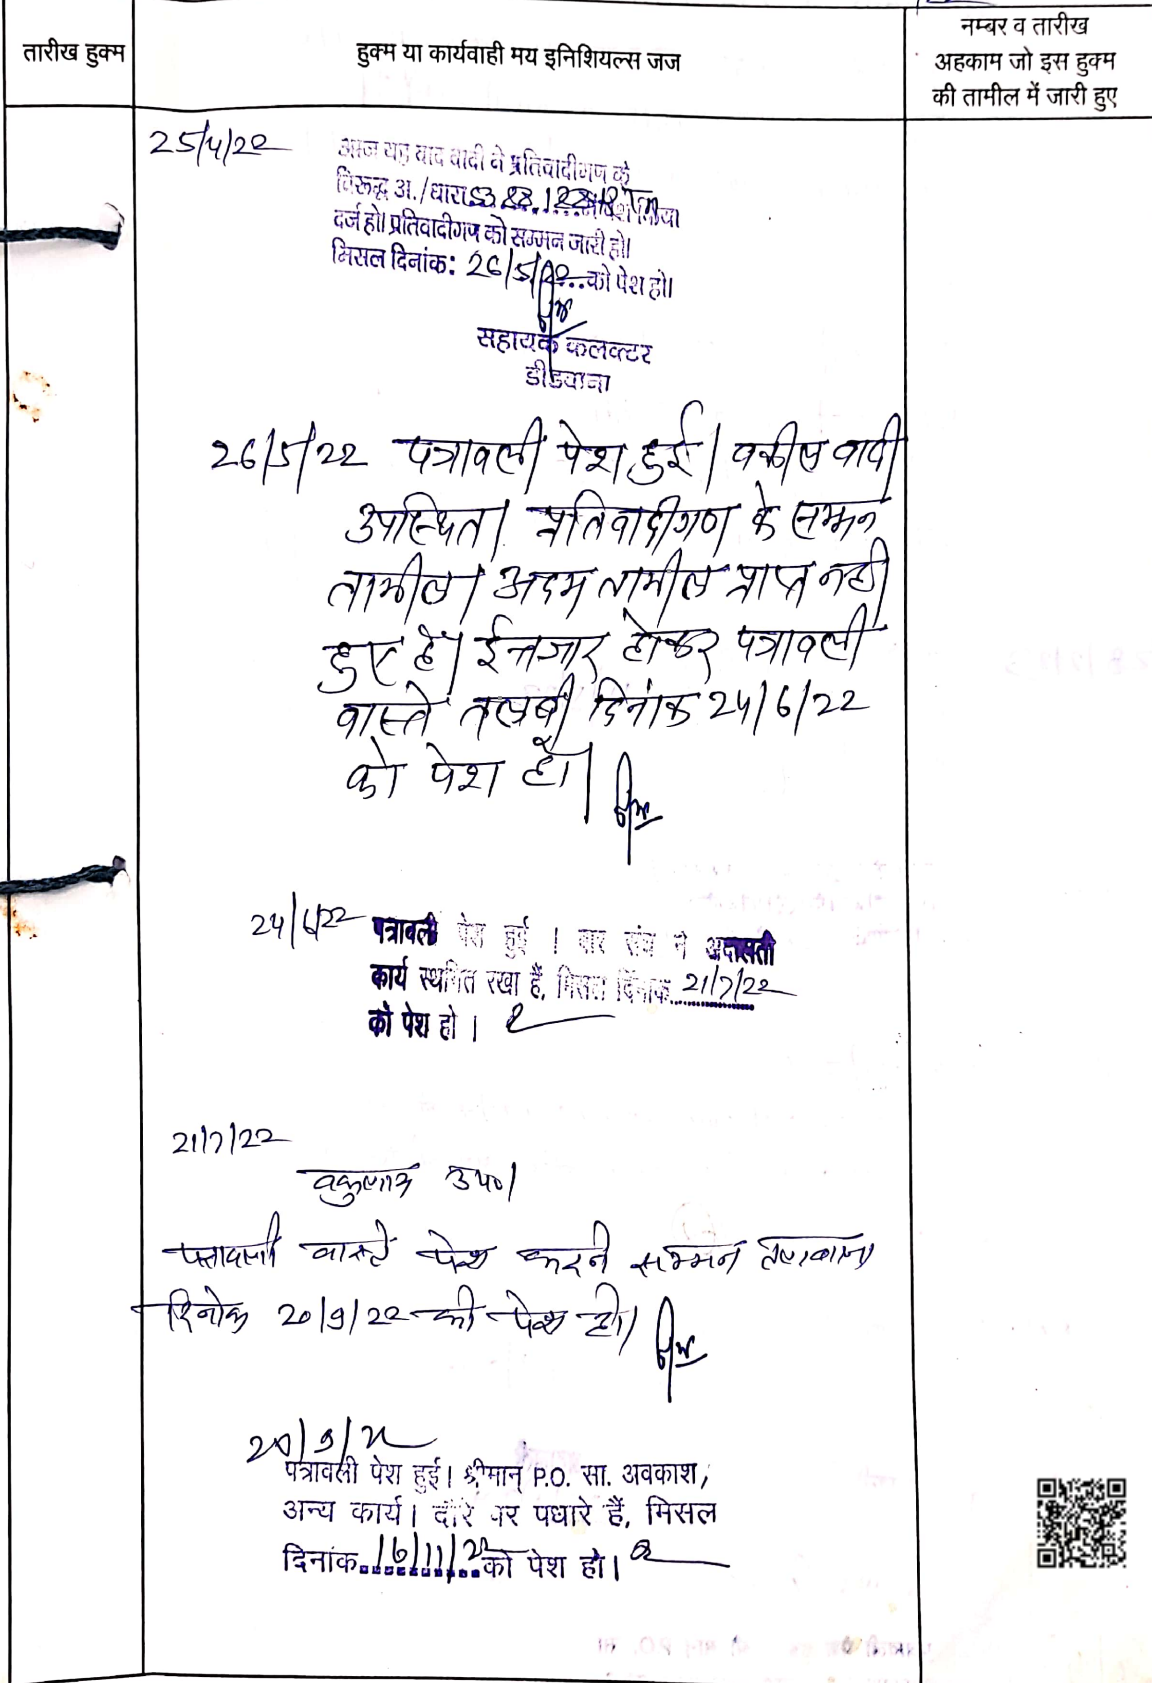 तारीख हुक्म
हुक्म या कार्यवाही मय इनिशियल्स जज
नम्बर व तारीख
अहकाम जो इस हुक्म
की तामील में जारी हुए
25/4/22
आज यह वाद वादी ने प्रतिवादीगण के
विरूद्ध अ./धारा
दर्ज हो। प्रतिवादीगण को सम्मन जारी हो।
मिसल दिनांक: 26/5/22 को पेश हो।
सहायक कलक्टर
डीडवाना
26/5/22 पत्रावली पेश हुई। वकील वादी
उपस्थित। प्रतिवादीगण के सम्मन
तामील। अदम तामील प्राप्त नही
हुए है। ईन्तजार होकर पत्रावली
वास्ते तलबी दिनांक 24/6/22
को पेश हो।
24/6/22 पत्रावली पेश हुई । बार संघ ने अदालती
कार्य स्थगित रखा हैं, मिसल दिनांक 21/7/22
को पेश हो ।
21/7/22
उप०।
पत्रावली वास्ते पेश करने सम्मन तलबाना
दिनांक 20/9/22 को पेश हो।
20/9/22
पत्रावली पेश हुई। श्रीमान् P.O. सा. अवकाश,
अन्य कार्य। दौरे पर पधारे हैं, मिसल
दिनांक 16/11/22 को पेश हो।